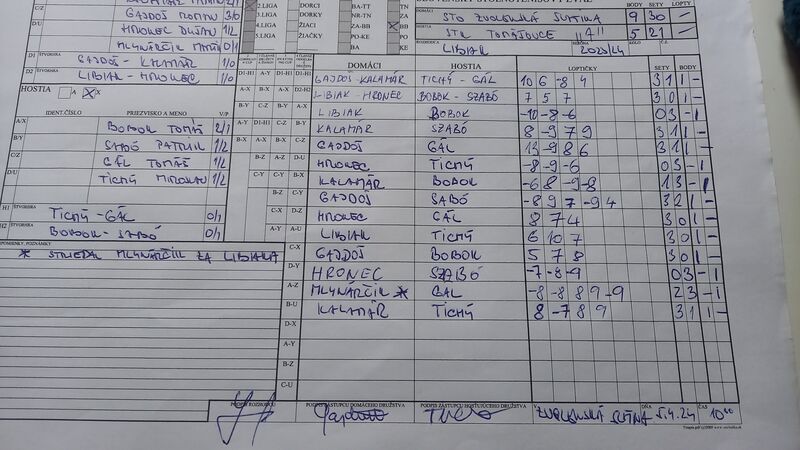 GAJDOŠ ROMAN 3/0
HRONEC DUŠAN 1/2
MLYNÁRČIK 0/1
D1 ŠTVORHRA GAJDOŠ - KALAMÁR 1/0
D2 ŠTVORHRA LIBIAK - HRONEC 1/0
2.LIGA
3.LIGA
4.LIGA
5.LIGA
DORCI
DORKY
ŽIACI
ŽIAČKY
BA-TT
NR-TN
ZA-BB
PO-KE
BA
TT
NR
TN
ZA
BB
PO
KE
DOMÁCI STO ZVOLENSKÁ SLATINA
HOSTIA STK TOMÁŠOVCE "A"
LIBIAK
SEZÓNA 2023/24
BODY SETY LOPTY
9 30 –
5 21 –
HOSTIA A X
IDENT.ČÍSLO PRIEZVISKO A MENO V/P
A/X BOBOK TOMÁŠ 2/1
B/Y SABÓ PATRIK 1/2
C/Z GÁL TOMÁŠ 1/2
D/U TICHÝ MIROSLAV 1/2
H1 ŠTVORHRA TICHÝ - GÁL 0/1
H2 ŠTVORHRA BOBOK - SABÓ 0/1
PRIPOMIENKY, POZNÁMKY
* STRIEDAL MLYNÁRČIK ZA LIBIAKA
DOMÁCI HOSTIA LOPTIČKY SETY BODY
GAJDOŠ-KALAMÁR TICHÝ - GÁL 10 6 -8 4 3 1 1 –
LIBIAK-HRONEC BOBOK - SZABÓ 7 5 7 3 0 1 –
LIBIAK BOBOK -10 -8 -6 0 3 – 1
KALAMÁR SZABÓ 8 -9 7 9 3 1 1 –
GAJDOŠ GÁL 13 -9 8 6 3 1 1 –
HRONEC TICHÝ -8 -9 -6 0 3 – 1
KALAMÁR BOBOK -6 8 -9 -8 1 3 – 1
GAJDOŠ SABÓ -8 9 7 -9 4 3 2 1 –
HRONEC GÁL 8 7 4 3 0 1 –
LIBIAK TICHÝ 6 10 7 3 0 1 –
C-X GAJDOŠ BOBOK 5 7 8 3 0 1 –
D-Y HRONEC SZABÓ -7 -8 -9 0 3 – 1
A-Z MLYNÁRČIK * GÁL -8 -8 8 9 -9 2 3 – 1
B-U KALAMÁR TICHÝ 8 -7 8 9 3 1 1 –
D-X
A-Y
B-Z
C-U
PODPIS ROZHODCU PODPIS ZÁSTUPCU DOMÁCEHO DRUŽSTVA PODPIS ZÁSTUPCU HOSŤUJÚCEHO DRUŽSTVA
V ZVOLENSKÁ SLATINA DŇA 5.4.24 ČAS 10 00